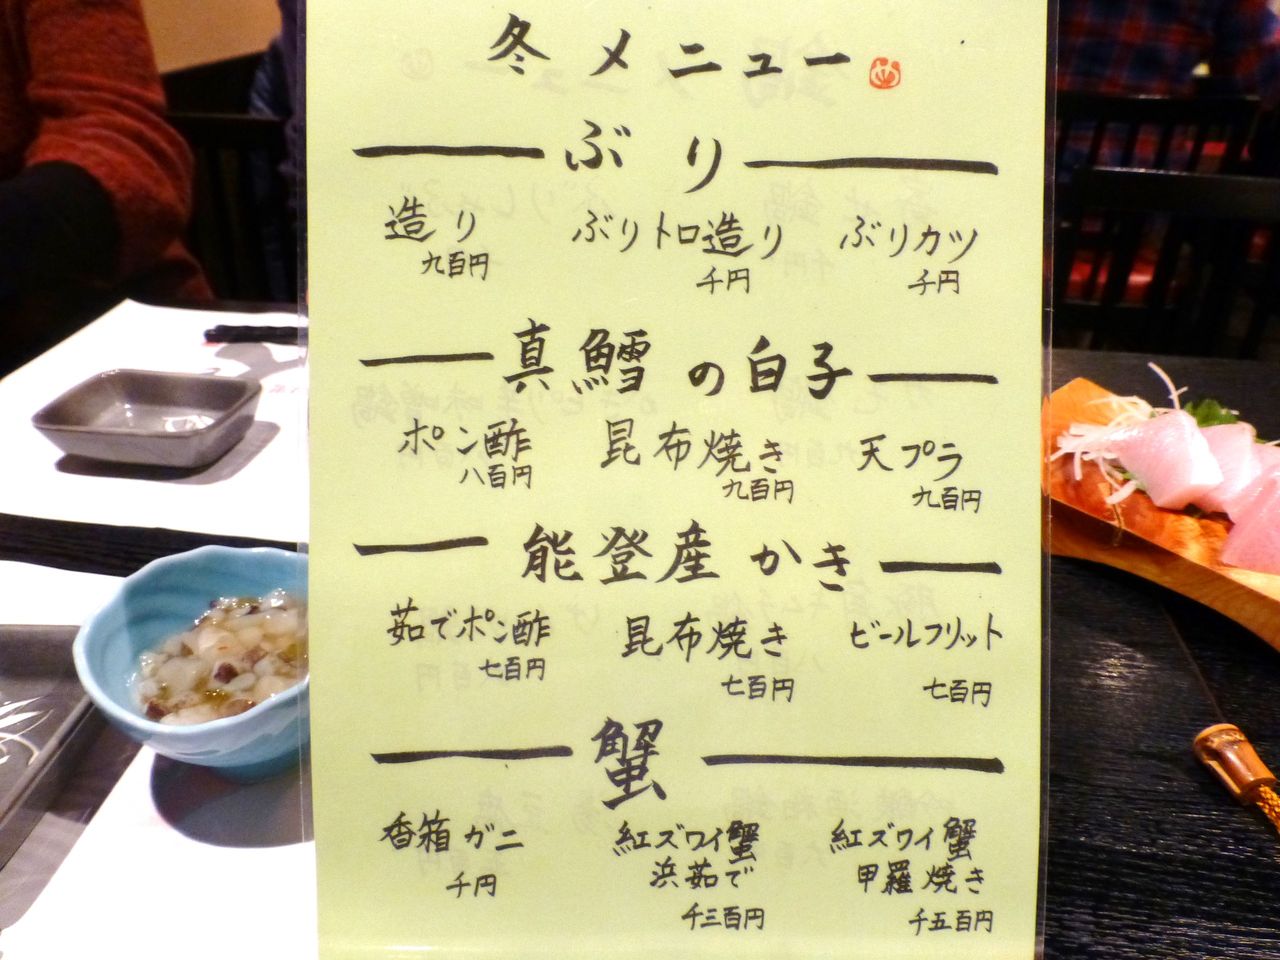 冬メニュー
ぶり
造り ぶりトロ造り ぶりカツ
九百円 千円 千円
真鱈の白子
ポン酢 昆布焼き 天プラ
八百円 九百円 九百円
能登産かき
茹でポン酢 昆布焼き ビールフリット
七百円 七百円 七百円
蟹
香箱ガニ 紅ズワイ蟹 紅ズワイ蟹
浜茹で 甲羅焼き
千円 千三百円 千五百円